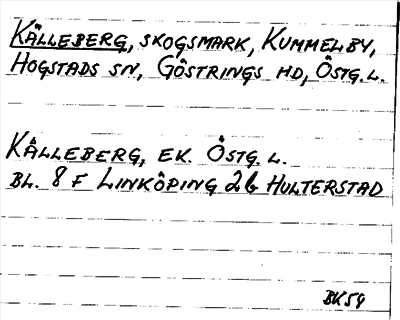 KÄLLEBERG, SKOGSMARK, KUMMELBY,
HOGSTADS SN, GÖSTRINGS HD, ÖSTG. L.
KÄLLEBERG, EK. ÖSTG. L.
BL. 8 F LINKÖPING 2b HULTERSTAD
BK59